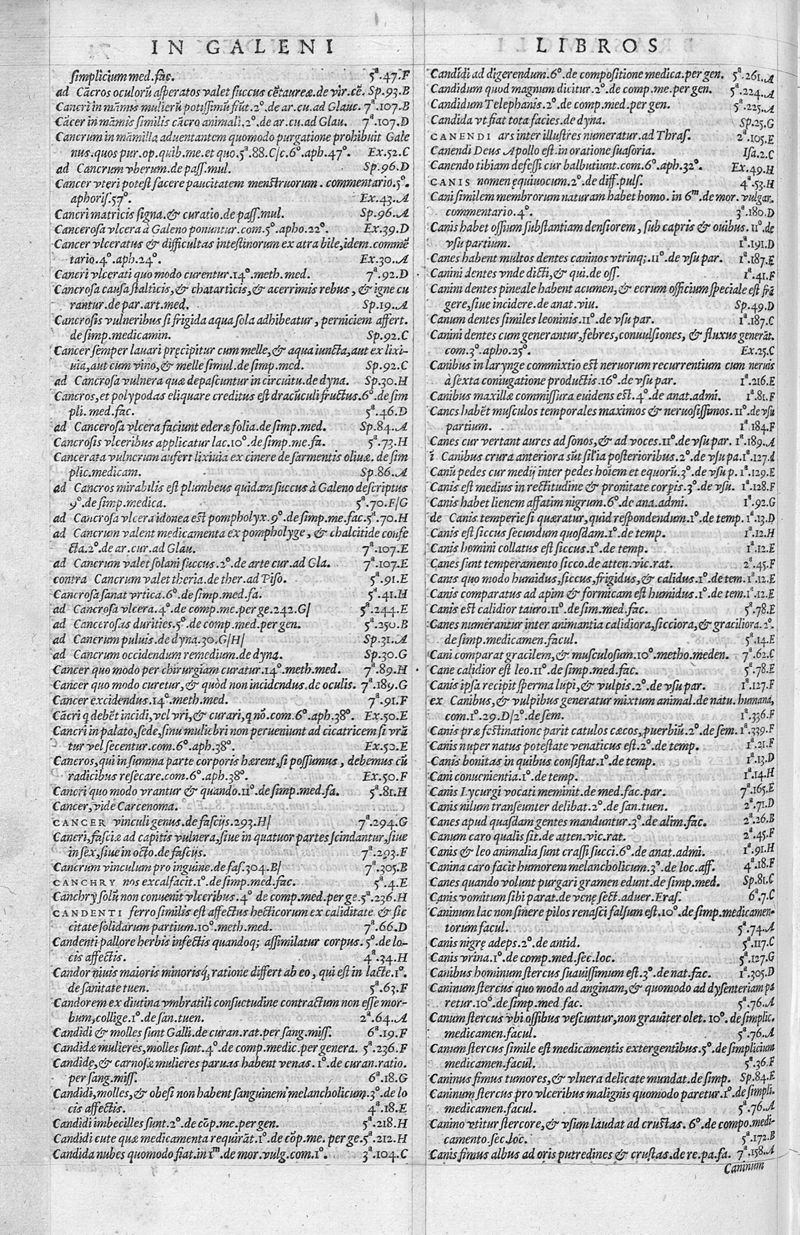 IN GALENI
simplicium med.fac. 5ª.47.F
ad Cãcros oculorũ asperatos valet succus cẽtaureæ.de vir.cẽ. Sp.93.B
Cancri in mãmis mulierũ potissimũ fiũt.2º.de ar.cu.ad Glauc. 7ª.107.B
Cãcer in mãmis similis cãcro animali.2º.de ar.cu.ad Glau. 7ª.107.D
Cancrum in mãmilla aduentantem quomodo purgatione prohibuit Gale
nus.quos pur.op.quib.me.et quo.5ª.88.C/c.6º.aph.47º. Ex.52.C
ad Cancrum vberum.de pass.mul. Sp.96.D
Cancer vteri potest facere paucitatem menstruorum. commentario.5º.
aphoris.57º. Ex.43.A
Cancri matricis signa.& curatio.de pass.mul. Sp.96.A
Cancerosa vlcera à Galeno ponuntur.com.5º.apho.22º. Ex.39.D
Cancer vlceratus & difficultas intestinorum ex atra bile,idem.commẽ
tario.4º.aph.24º. Ex.30.A
Cancri vlcerati quo modo curentur.14º.meth.med. 7ª.92.D
Cancrosa causa stalticis,& chatarticis,& acerrimis rebus, & igne cu
rantur.de par.art.med. Sp.19.A
Cancrosis vulneribus si frigida aqua sola adhibeatur, perniciem affert.
de simp.medicamin. Sp.92.C
Cancer semper lauari pręcipitur cum melle,& aqua iuncta,aut ex lixi-
uia,aut cum vino,& melle simul.de simp.med. Sp.92.C
ad Cancrosa vulnera quæ depascuntur in circuitu.de dyna. Sp.30.H
Cancros,et polypodas eliquare creditus est dracũculi fructus.6º.de sim
pli.med.fac. 5ª.46.D
ad Cancerosa vlcera faciunt ederæ folia.de simp.med. Sp.84.A
Cancrosis vlceribus applicatur lac.10º.de simp.me.fa. 5ª.73.H
Cancerata vulnerum aufert lixiuia ex cinere de sarmentis oliuæ. de sim
plic.medicam. Sp.86.A
ad Cancros mirabilis est plumbeus quidam succus à Galeno descriptus
9º.de simp.medica. 5ª.70.F/G
ad Cancrosa vlcera idonea est pompholyx.9º.de simp.me.fac.5ª.70.H
ad Cancrum valent medicamenta ex pompholyge, & chalcitide confe
cta.2º.de ar.cur.ad Glau. 7ª.107.E
ad Cancrum valet solani succus.2º.de arte cur.ad Gla. 7ª.107.E
contra Cancrum valet theria.de ther.ad Piso. 5ª.91.E
Cancrosa sanat vrtica.6º.de simp.med.fa. 5ª.41.H
ad Cancrosa vlcera.4º.de comp.me.per ge.242.G/ 5ª.244.E
ad Cancerosas durities.5º.de comp.med.per gen. 5ª.250.B
ad Cancrum puluis.de dyna.30.G/H/ Sp.31.A
ad Cancrum occidendum remedium.de dyna. Sp.30.G
Cancer quo modo per chirurgiam curatur.14º.meth.med. 7ª.89.H
Cancer quo modo curetur,& quòd non incidendus.de oculis. 7ª.189.G
Cancer excidendus.14º.meth.med. 7ª.91.F
Cãcri q debẽt incidi,vel vri,& curari,q nõ.com.6º.aph.38º. Ex.50.E
Cancri in palato,sede,sinu mulicbri non perueniunt ad cicatricem si vrã
tur vel secentur.com.6º.aph.38º. Ex.52.E
Cancros,qui in summa parte corporis hærent,si possumus, debemus cũ
radicibus resecare.com.6º.aph.38º. Ex.50.F
Cancri quo modo vrantur & quando.11º.de simp.med.fa. 5ª.81.H
Cancer,vide Carcenoma.
CANCER vinculi genus.de fascijs.293.H/ 7ª.294.G
Cancri,fasciæ ad capitis vulnera,siue in quatuor partes scindantur,siue
in sex,siue in octo.de fascijs. 7ª.293.F
Cancrum vinculum pro inguine.de fas.304.B/ 7ª.305.B
CANCHRY nos excalfacit.1º.de simp.med.fac. 5ª.4.E
Canchrỹ solũ non conuenit vlceribus.4º de comp.med.per ge.5ª.236.H
CANDENTI ferro similis est affectus hecticorum ex caliditate & sic
citate solidarum partium.10º.meth.med. 7ª.66.D
Candenti pallore herbis infectis quandoq; assimilatur corpus.5º.de lo-
cis affectis. 4ª.34.H
Candor niuis maioris minorisq́;ratione differt ab eo, qui est in lacte.1º.
de sanitate tuen. 5ª.63.F
Candorem ex diutina vmbratili consuetudine contractum non esse mor-
bum,collige.1º.de san.tuen. 2ª.64.A
Candidi & molles sunt Galli.de curan.rat.per sang.miss. 6ª.19.F
Candidæ mulieres,molles sunt.4º.de comp.medic.per genera. 5ª.236.F
Candidę,& carnosæ mulieres paruas habent venas. 1º.de curan.ratio.
per sang.miss. 6ª.18.G
Candidi,molles,& obesi non habent sanguinem melancholicum.3º.de lo
cis affectis. 4ª.18.E
Candidi imbecilles sunt.2º.de cõp.me.per gen. 5ª.218.H
Candidi cute quæ medicamenta requirãt.1º.de cõp.me. per ge.5ª.212.H
Candida nubes quomodo fiat.in 1ᵐ.de mor.vulg.com.1º. 3ª.104.C
LIBROS
Candidi ad digerendum.6º.de compositione medica.per gen. 5ª.261.A
Candidum quod magnum dicitur.2º.de comp.me.per gen. 5ª.224.A
Candidum Telephanis.2º.de comp.med.per gen. 5ª.225.A
Candida vt fiat tota facies.de dyna. Sp.25.G
CANENDI ars inter illustres numeratur.ad Thras. 2ª.105.E
Canendi Deus Apollo est.in oratione suasoria. Isa.2.C
Canendo tibiam defessi cur balbutiunt.com.6º.aph.32º. Ex.49.H
CANIS nomen ęquiuocum.2º.de diff.puls. 4ª.53.H
Cani similem membrorum naturam habet homo. in 6ᵐ.de mor. vulgar.
commentario.4º. 3ª.180.D
Canis habet ossium substantiam densiorem, sub capris & ouibus. 11º.de
vsu partium. 1ª.191.D
Canes habent multos dentes caninos vtrinq;.11º.de vsu par. 1ª.187.E
Canini dentes vnde dicti,& qui.de oss. 1ª.41.F
Canini dentes pineale habent acumen,& eorum officium speciale est frã
gere,siue incidere.de anat.viu. Sp.49.D
Canum dentes similes leoninis.11º.de vsu par. 1ª.187.C
Canini dentes cum generantur,febres,conuulsiones, & fluxus generãt.
com.3º.apho.25º. Ex.25.C
Canibus in larynge commixtio est neruorum recurrentium cum neruis
à sexta coniugatione productis.16º.de vsu par. 1ª.216.E
Canibus maxillæ commissura euidens est.4º.de anat.admi. 1ª.81.F
Canes habẽt musculos temporales maximos & neruosissimos.11º.de vsu
partium. 1ª.184.F
Canes cur vertant aures ad sonos,& ad voces.11º.de vsu par. 1ª.189.A
ĩ Canibus crura anteriora sũt sĩlia posterioribus.2º.de vsu pa.1ª.127.A
Canũ pedes cur medij inter pedes hoĩem et equorũ.3º.de vsu p.1ª.129.E
Canis est medius in rectitudine & pronitate corpis.3º.de vsu. 1ª.128.F
Canis habet lienem affatim nigrum.6º.de ana.admi. 1ª.92.G
de Canis temperie si quæratur,quid respondendum.1º.de temp. 1ª.13.D
Canis est siccus secundum quosdam.1º.de temp. 1ª.12.H
Canis homini collatus est siccus.1º.de temp. 1ª.12.E
Canes sunt temperamento sicco.de atten.vic.rat. 2ª.45.F
Canis quo modo humidus,siccus,frigidus,& calidus.1º.de tem.1ª.12.E
Canis comparatus ad apim & formicam est humidus.1º.de tem.1ª.12.E
Canis est calidior tauro.11º.de sim.med.fac. 5ª.78.E
Canes numerantur inter animantia calidiora,sicciora,& graciliora.2º.
de simp.medicamen.facul. 5ª.14.E
Cani comparat gracilem,& musculosum.10º.metho.meden. 7ª.62.C
Cane calidior est leo.11º.de simp.med.fac. 5ª.78.E
Canis ipsa recipit sperma lupi,& vulpis.2º.de vsu par. 1ª.127.F
ex Canibus,& vulpibus generatur mixtum animal.de natu. humana,
com.1º.29.D/2º.de sem. 1ª.336.F
Canis præ festinatione parit catulos cæcos,puerũĩũ.2º.de sem. 1ª.339.F
Canis nuper natus potestate venaticus est.2º.de temp. 1ª.21.F
Canis bonitas in quibus consistat.1º.de temp. 1ª.13.D
Cani conuenientia.1º.de temp. 1ª.14.H
Canis Lycurgi vocati meminit.de med.fac.par. 7ª.165.E
Canis nilum transeunter delibat.2º.de san.tuen. 2ª.71.D
Canes apud quasdam gentes manduntur.3º.de alim.fac. 2ª.26.B
Canum caro qualis sit.de atten.vic.rat. 2ª.45.F
Canis & leo animalia sunt crassi succi.6º.de anat.admi. 1ª.91.H
Canina caro facit humorem melancholicum.3º.de loc.aff. 4ª.18.F
Canes quando volunt purgari gramen edunt.de simp.med. Sp.81.C
Canis vomitum sibi parat.de venę sect.aduer.Eras. 6ª.7.C
Caninum lac non sinere pilos renasci falsum est.10º.de simp.medicamen-
torum facul. 5ª.74.A
Canis nigrę adeps.2º.de antid. 5ª.117.C
Canis vrina.1º.de comp.med.sec.loc. 5ª.127.G
Canibus hominum stercus suauissimum est.3º.de nat.fac. 1ª.305.D
Caninum stercus quo modo ad anginam,& quomodo ad dysenteriam pa
retur.10º.de simp.med.fac. 5ª.76.A
Canum stercus vbi ossibus vescuntur,non grauiter olet. 10º.de simplic.
medicamen.facul. 5ª.76.A
Canum stercus simile est medicamentis extergentibus.5º.de simplicium
medicamen.facul. 5ª.36.F
Caninus fimus tumores,& vlnera delicate mundat.de simp. Sp.84.E
Caninum stercus pro vlceribus malignis quomodo paretur.1º.de simpli.
medicamen.facul. 5ª.76.A
Canino vtitur stercore,& vsum laudat ad crustas. 6º.de compo.medi-
camento.sec.loc. 5ª.172.B
Canis fimus albus ad oris putredines & crustas.de re.pa.fa. 7ª.158.A
Caninum